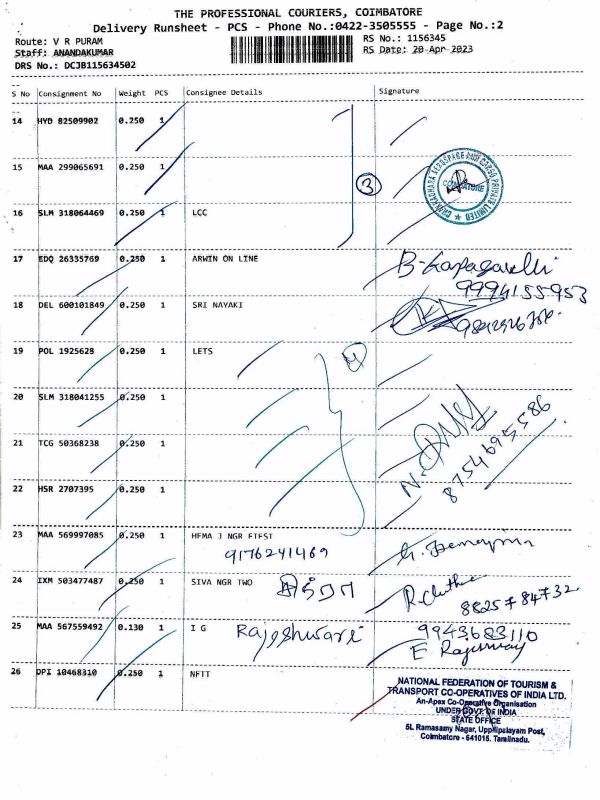 THE PROFESSIONAL COURIERS, COIMBATORE
Delivery Runsheet - PCS - Phone No.:0422-3505555 - Page No.:2
Route: V R PURAM
RS No.: 1156345
Staff: ANANDAKUMAR
RS Date: 20-Apr-2023
DRS No.: DCJB115634502
S No Consignment No Weight PCS Consignee Details Signature
14 HYD 82509902 0.250 1
15 MAA 299065691 0.250 1
3
16 SLM 318064469 0.250 1 LCC
COIMBATORE
17 EDQ 26335769 0.250 1 ARWIN ON LINE
9994155953
18 DEL 600101849 0.250 1 SRI NAYAKI
19 POL 1925628 0.250 1 LETS
4
20 SLM 318041255 0.250 1
21 TCG 50368238 0.250 1
8754695586
22 HSR 2707395 0.250 1
23 MAA 569997085 0.250 1 HEMA J NGR FIEST
9176241469
24 IXM 503477487 0.250 1 SIVA NGR TWO
8825784732
25 MAA 567559492 0.130 1 I G Rajeshwari 9943683110
26 DPI 10468310 0.250 1 NFTT
NATIONAL FEDERATION OF TOURISM &
TRANSPORT CO-OPERATIVES OF INDIA LTD.
An-Apex Co-Operative Organisation
UNDER GOVT. OF INDIA
STATE OFFICE
5L Ramasamy Nagar, Uppilipalayam Post,
Coimbatore - 641015. Tamilnadu.